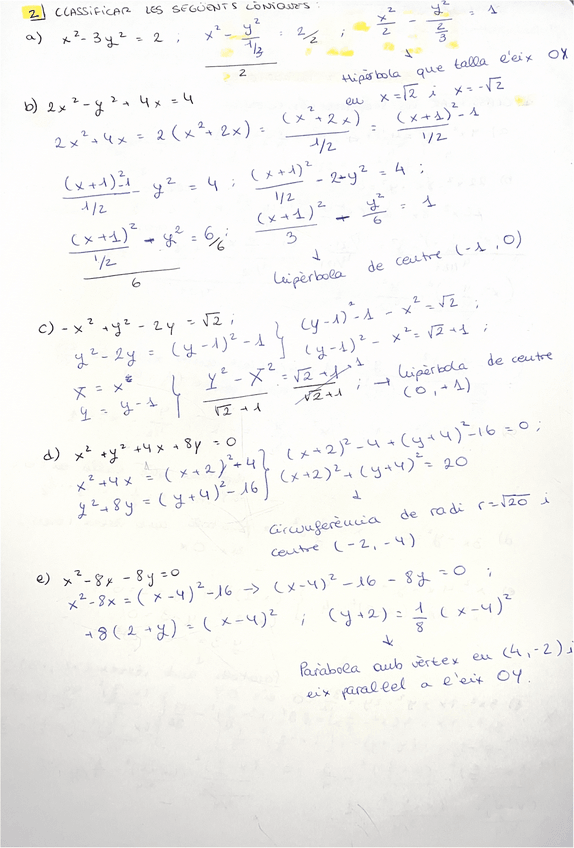 2. CLASSIFICAR LES SEGÜENTS CÒNIQUES:
a) x² - 3y² = 2 ; (x² - y²/(1/3))/2 = 2/2 ; x²/2 - y²/(2/3) = 1
Hipèrbola que talla l'eix OX
en x = √2 i x = -√2
b) 2x² - y² + 4x = 4
2x² + 4x = 2(x² + 2x) = (x² + 2x)/(1/2) = ((x+1)² - 1)/(1/2)
((x+1)² - 1)/(1/2) - y² = 4 ; (x+1)²/(1/2) - 2 - y² = 4 ;
((x+1)²/(1/2) - y²)/6 = 6/6 ; (x+1)²/3 - y²/6 = 1
↓
hipèrbola de centre (-1, 0)
c) -x² + y² - 2y = √2 ;
y² - 2y = (y-1)² - 1 } (y-1)² - 1 - x² = √2 ;
(y-1)² - x² = √2 + 1 ;
x = x
y = y - 1 { (y² - x²)/(√2 + 1) = (√2 + 1)/(√2 + 1) 1 ; → hipèrbola de centre
(0, +1)
d) x² + y² + 4x + 8y = 0
x² + 4x = (x+2)² + 4 } (x+2)² - 4 + (y+4)² - 16 = 0 ;
y² + 8y = (y+4)² - 16 } (x+2)² + (y+4)² = 20
↓
Circumferència de radi r = √20 i
centre (-2, -4)
e) x² - 8x - 8y = 0
x² - 8x = (x-4)² - 16 → (x-4)² - 16 - 8y = 0 ;
+8(2 + y) = (x-4)² ; (y+2) = 1/8 (x-4)²
↓
Paràbola amb vèrtex en (4, -2) i
eix paral·lel a l'eix OY.